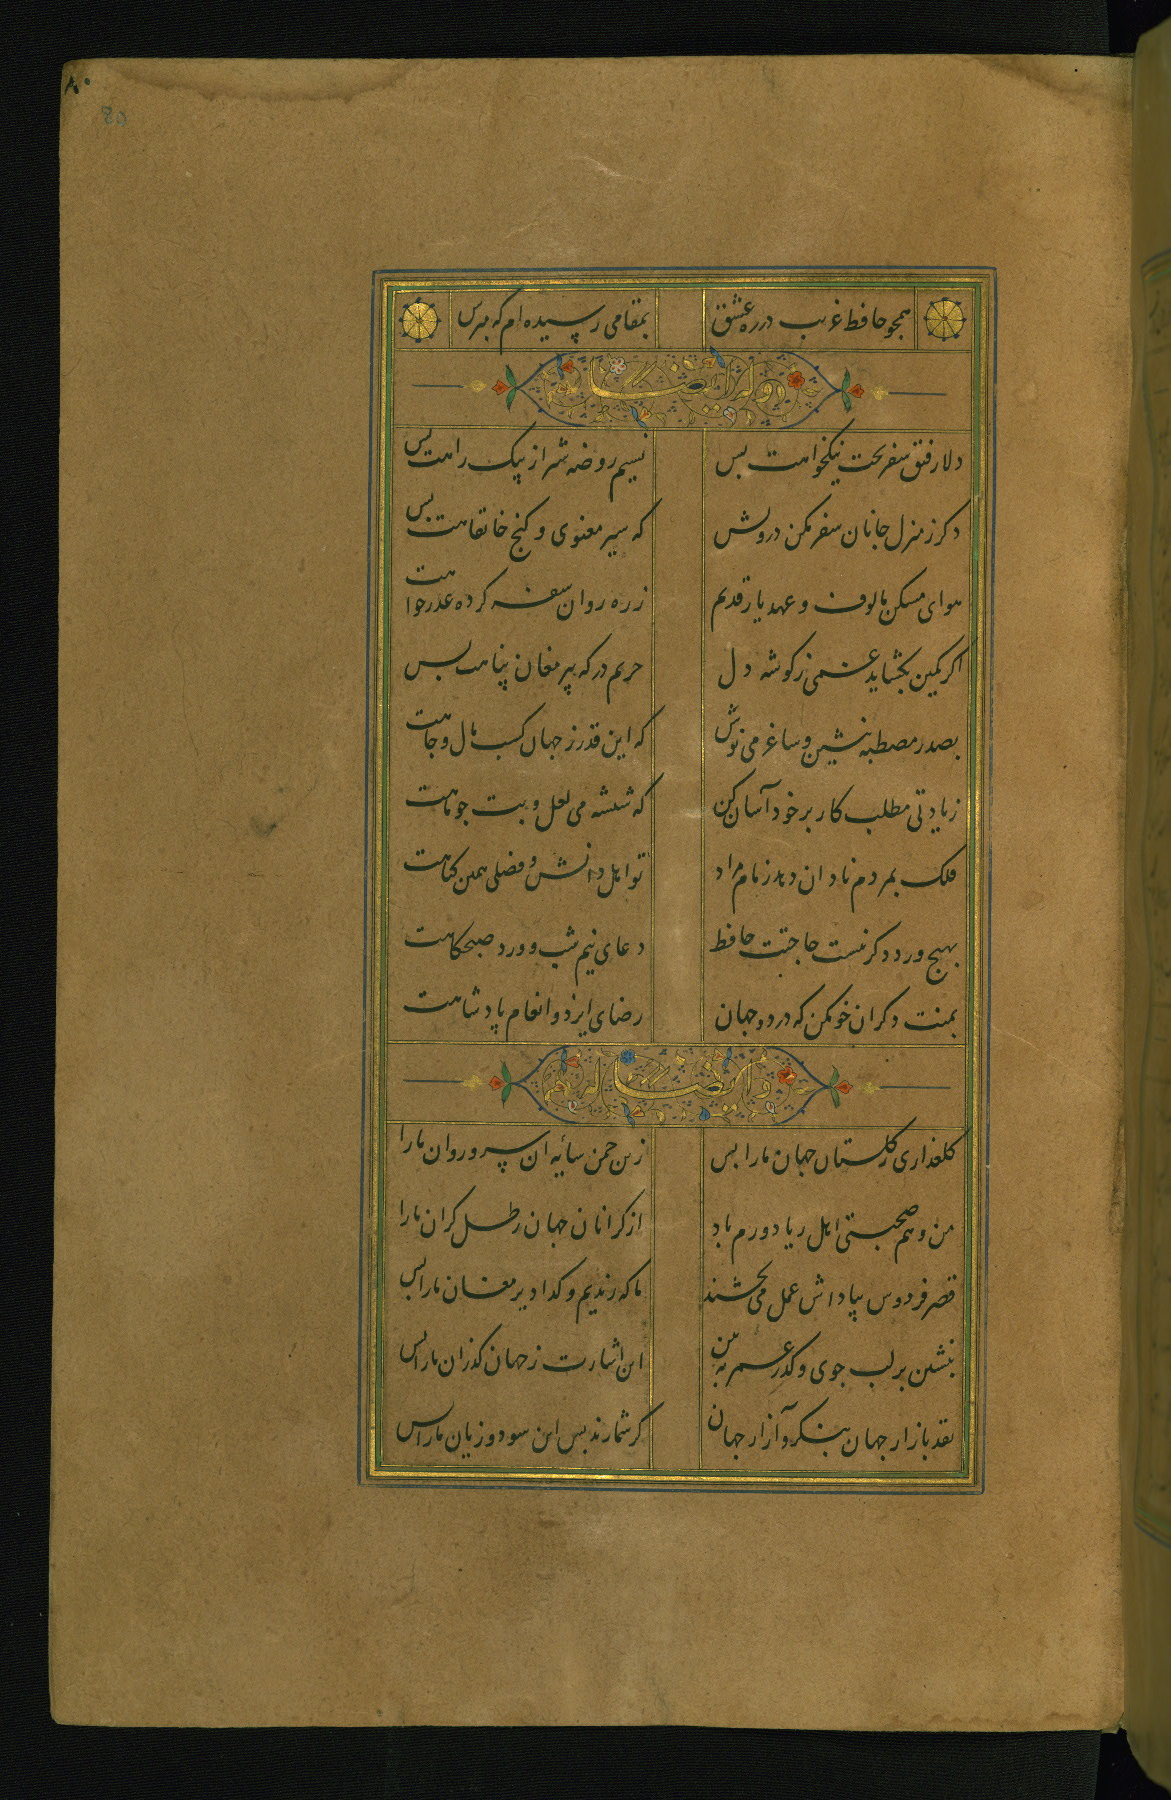 ۸۰
80
همچو حافظ غریب در ره عشق بمقامی رسیده ام که مپرس
وله ایضا
دلا رفیق سفر بخت نیکخواهت بس نسیم روضه شیراز پیک راهت بس
دکر ز منزل جانان سفر مکن درویش که سیر معنوی و کنج خانقاهت بس
هوای مسکن مالوف و عهد یار قدیم ز ره روان سفر کرده عذرخواهت
اکر کمین بکشاید غمی ز کوشه دل حریم درکه پیر مغان پناهت بس
بصدر مصطبه بنشین و ساغر می نوش که این قدر ز جهان کسب مال و جاهت
زیادتی مطلب کار بر خود آسان کن که شیشه می لعل و بت چو ماهت
فلک بمردم نادان دهد زمام مراد تو اهل دانش و فضلی همین کناهت
بهیچ ورد دکر نیست حاجتت حافظ دعای نیم شب و ورد صبحکاهت
بمنت دکران خو مکن که در دو جهان رضای ایزد و انعام پادشاهت
و ایضا له
کلعذاری ز کلستان جهان ما را بس زین چمن سایه آن سرو روان ما را
من و هم صحبتی اهل ریا دورم باد از کرانان جهان رطل کران ما را
قصر فردوس بپاداش عمل می بخشند ما که رندیم و کدا دیر مغان ما را بس
بنشین بر لب جوی و کذر عمر ببین این اشارت ز جهان کذران ما را بس
نقد بازار جهان بنکر و آزار جهان کر شما را نه بس این سود و زیان ما را بس